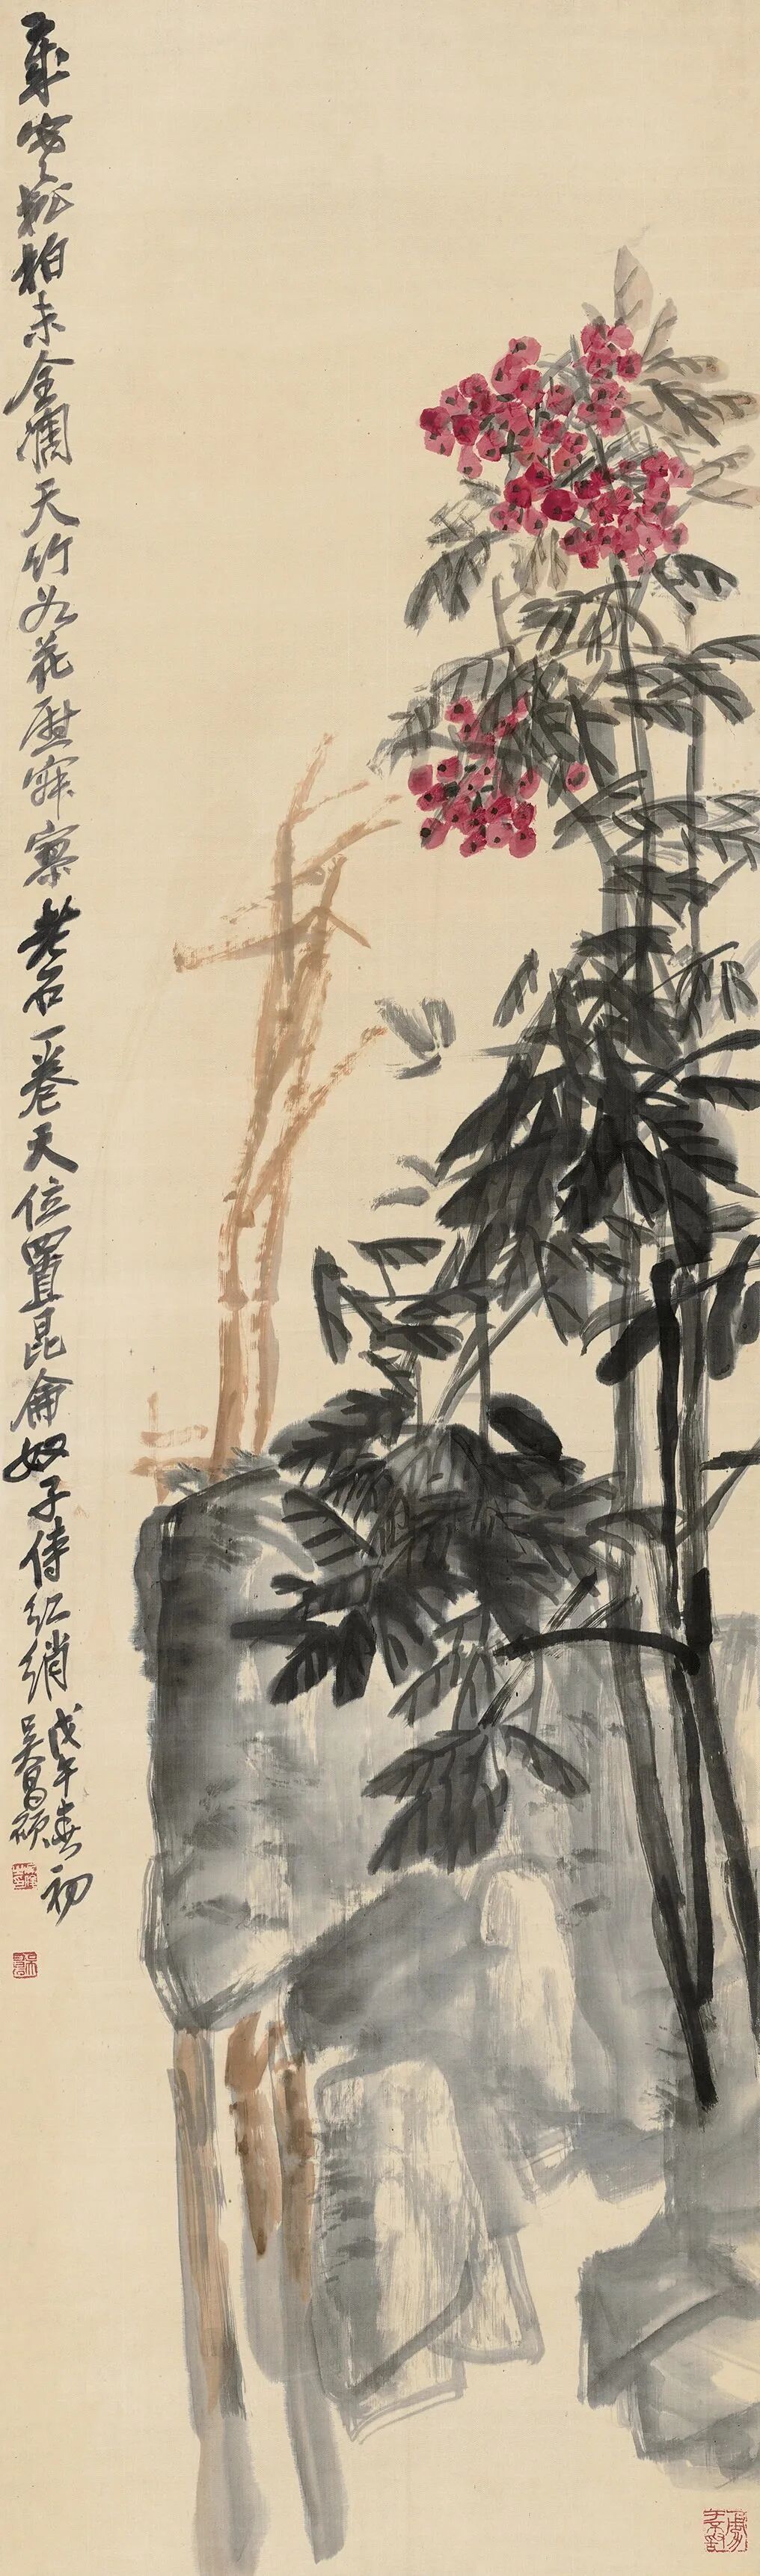 歲寒松柏未全凋天竹如花慰寂寥老石一卷天位置昆侖奴子侍紅綃
戊午春初
吳昌碩